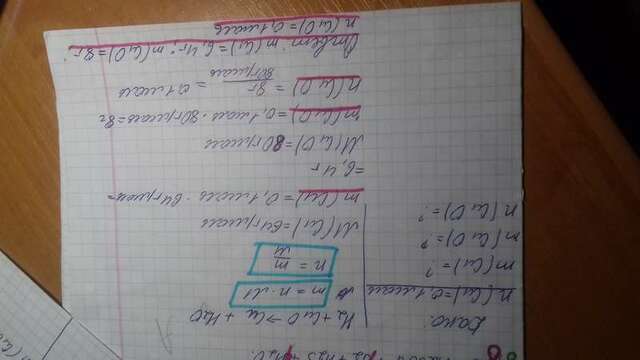 Дано:
n(Cu)=0,1моль
m(Cu)=?
m(CuO)=?
n(CuO)=?
H2+CuO→Cu+H2O
m=n·M
n=m/M
M(Cu)=64г/моль
m(Cu)=0,1моль·64г/моль=
=6,4г
M(CuO)=80г/моль
m(CuO)=0,1моль·80г/моль=8г
n(CuO)=8г/80г/моль=0,1моль
Ответ: m(Cu)=6,4г; m(CuO)=8г;
n(CuO)=0,1моль